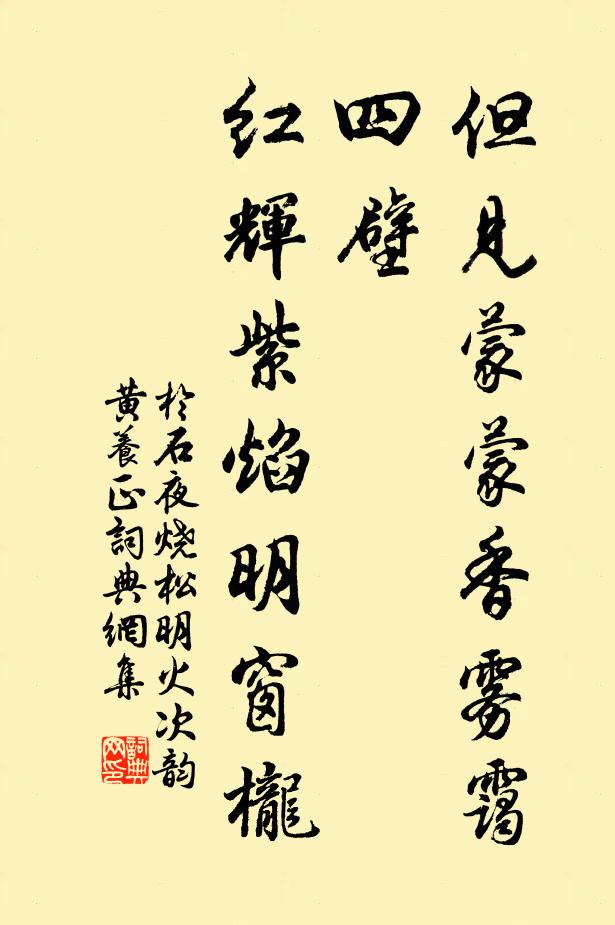 但見蒙蒙香雾靄
四壁
红輝紫焰明窗櫳
於石夜烧松明火次韵
黄養正詞典網集
詞典网印